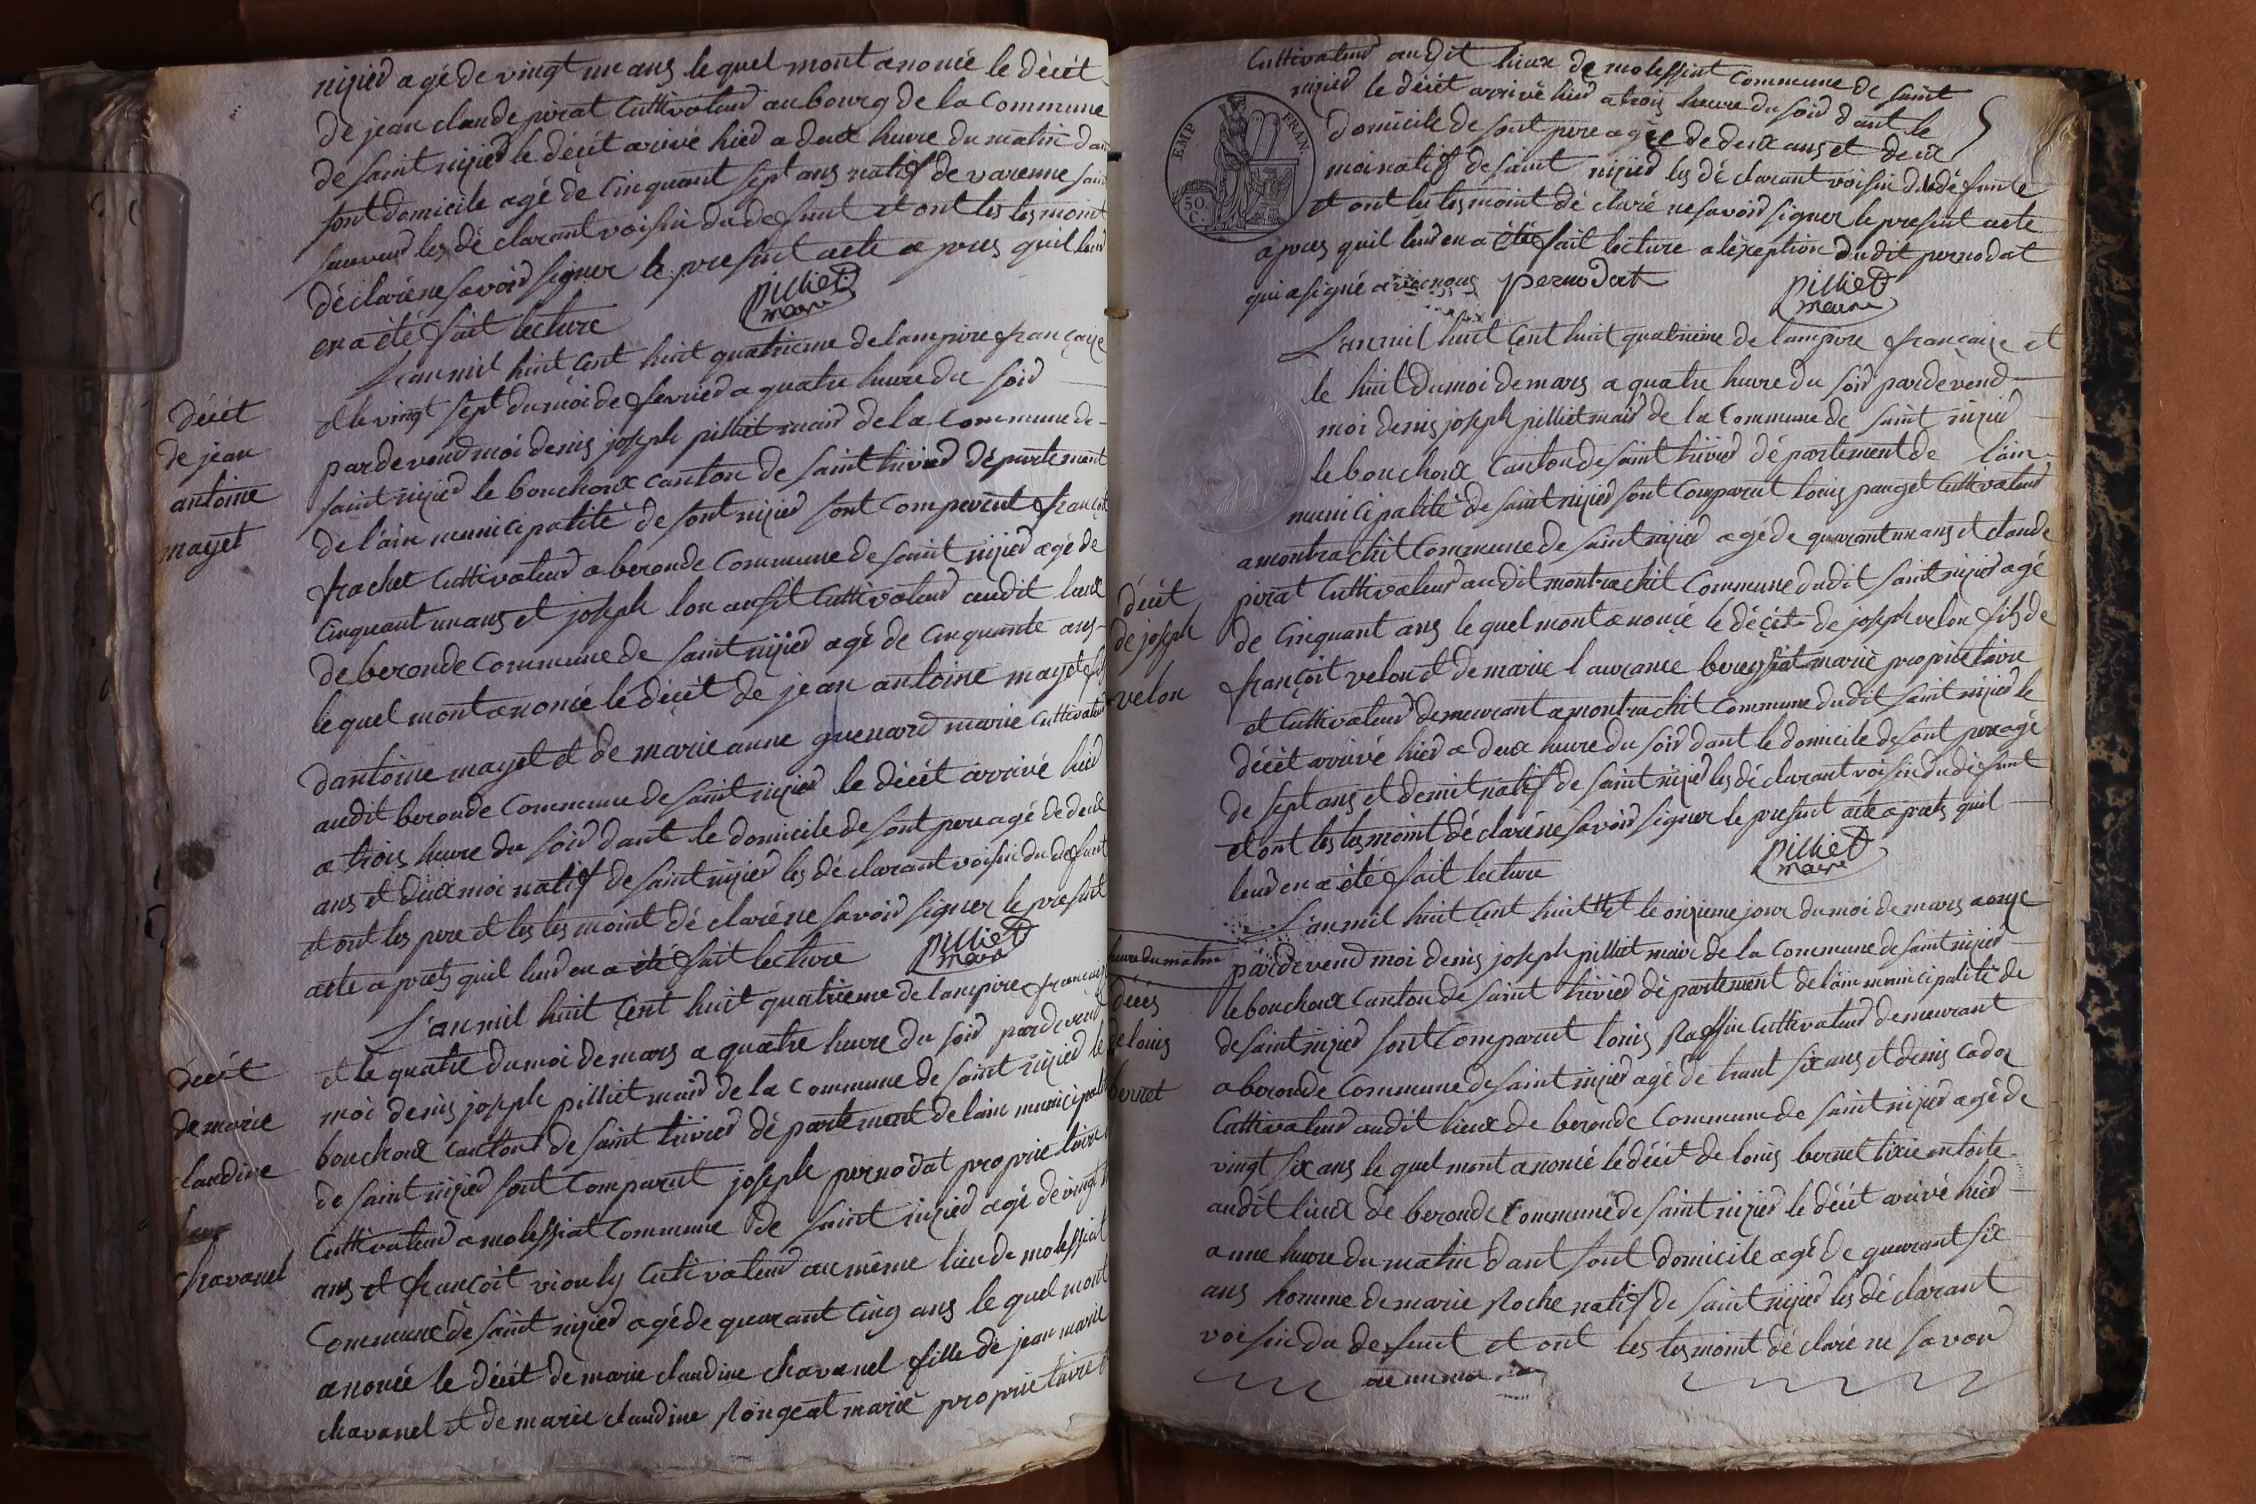 nizier agé de vingt un ans le quel mont anoncé le décét
de jean claude pirat Cultivateur au bourg de la Commune
de saint nizier le décét arivé hier a deux heure du matin dan
sont domicile agé de Cinquant sept ans natif de varenne sain
sauveur les dé clarant voisin du defunt et ont les tesmoint
déclaré ne savoir signer le present acte a pres quil leur
en a été fait lecture
pilliet
maire
L'an mil huit Cent huit quatrieme de lampire française
décét
et le vingt sept du moi de fevrier a quatre heure du soir
de jean
par de vend moi denis joseph pilliet maire de la Commune de
antoine
saint nizier le bouchoux canton de saint trivier département
mayet
de l'ain municipalité de sont nizier sont Comparent françoit
frachet Cultivateur a beronde Commune de saint nizier agé de
Cinquant un ans et joseph lon ausit Cultivateur audit lieux
de beronde Commune de saint nizier agé de Cinquante ans
le quel mont anoncé le décét de jean antoine mayet fils
dantoine mayet et de marie anne guenard marié Cultivateur
audit beronde Commune de saint nizier le décét arrivé hier
a trois heure du soir dant le domicile de sont pere agé de deux
ans et deux moi natif de saint nizier les dé clarant voisin du defunt
et ont les pere et les tesmoint dé claré ne savoir signer le present
acte a prets quil leur en a été fait lecture
pilliet
maire
L'an mil huit Cent huit quatrieme de lampire français
décét
et le quatre du moi de mars a quatre heure du soir par de vend
de marie
moi denis joseph pilliet maire de la Commune de saint nizier le
claudine
bouchoux Canton de saint trivier dé partement de lain municipalité
de saint nizier sont Comparut joseph pernodat proprie taire
chavanel
Cultivateur a molessiat Commune de saint nizier agé de vingt
ans et françoit viouly Cultivateur au même lieu de molessiat
Commune de saint nizier agé de quarant Cinq ans le quel mont
anoncé le décét de marie claudine chavanel fille de jean marie
chavanel et de marie claudine Rongeat marié proprietaire
Cultivateur au dit lieux de molessiat Commune de saint
nizier le décét arrivé hier a trois heure du soir dant le
5
domicile de sont pere agée de deux ans et deux
moi natif de saint nizier les dé clarant voisin du défunte
et ont les tesmoint dé claré ne savoir signer le present acte
apres quil leur en a été fait lecture a l'exeption dudit pernodat
qui a signé avec nous pernodat
EMP. FRAN.
50 C.
pilliet
maire
L'an mil huit Cent huit quatrieme de lampire française et
le huit du moi de mars a quatre heure du soir par de vend
moi denis joseph pilliet maire de la Commune de saint nizier
le bouchoux Canton de saint trivier dé partement de l'ain
municipalité de saint nizier sont Comparut louis pauget Cultivateur
a montrachit Commune de saint nizier agé de quarant un ans et claude
pirat Cultivateur audit montrachit Commune dudit saint nizier agé
décét
de Cinquant ans le quel mont anoncé le décét de joseph velon fils de
de joseph
françoit velon et de marie laurance bereyziat marié proprietaire
velon
et Cultivateur demeurant a montrachit Commune dudit saint nizier le
décét arrivé hier a deux heure du soir dant le domicile de sont pere agé
de sept ans et demit natif de saint nizier les déclarant voisin du defunt
et ont les tesmoint déclaré ne savoir signer le present acte a prets quil
leur en a été fait lecture
pilliet
maire
L'an mil huit Cent huit et le onzieme jour du moi de mars a onze
heure du matin par de vend moi denis joseph pilliet maire de la Commune de saint nizier
déces
le bouchoux Canton de saint trivier dé partement de l'ain municipalité de
de louis
de saint nizier sont Comparut louis Raffin Cultivateur demeurant
bernet
a beronde Commune de saint nizier agé de trant six ans et denis Cadoz
Cultivateur audit lieux de beronde Commune de saint nizier agé de
vingt six ans le quel mont anoncé le décét de louis bernet tixie en toite
audit lieux de beronde Commune de saint nizier le décét arivé hier
a une heure du matin dant sont domicile agé de quarant six
ans homme de marie Roche natif de saint nizier les dé clarant
voisin du defunt et ont les tesmoint dé claré ne savoir